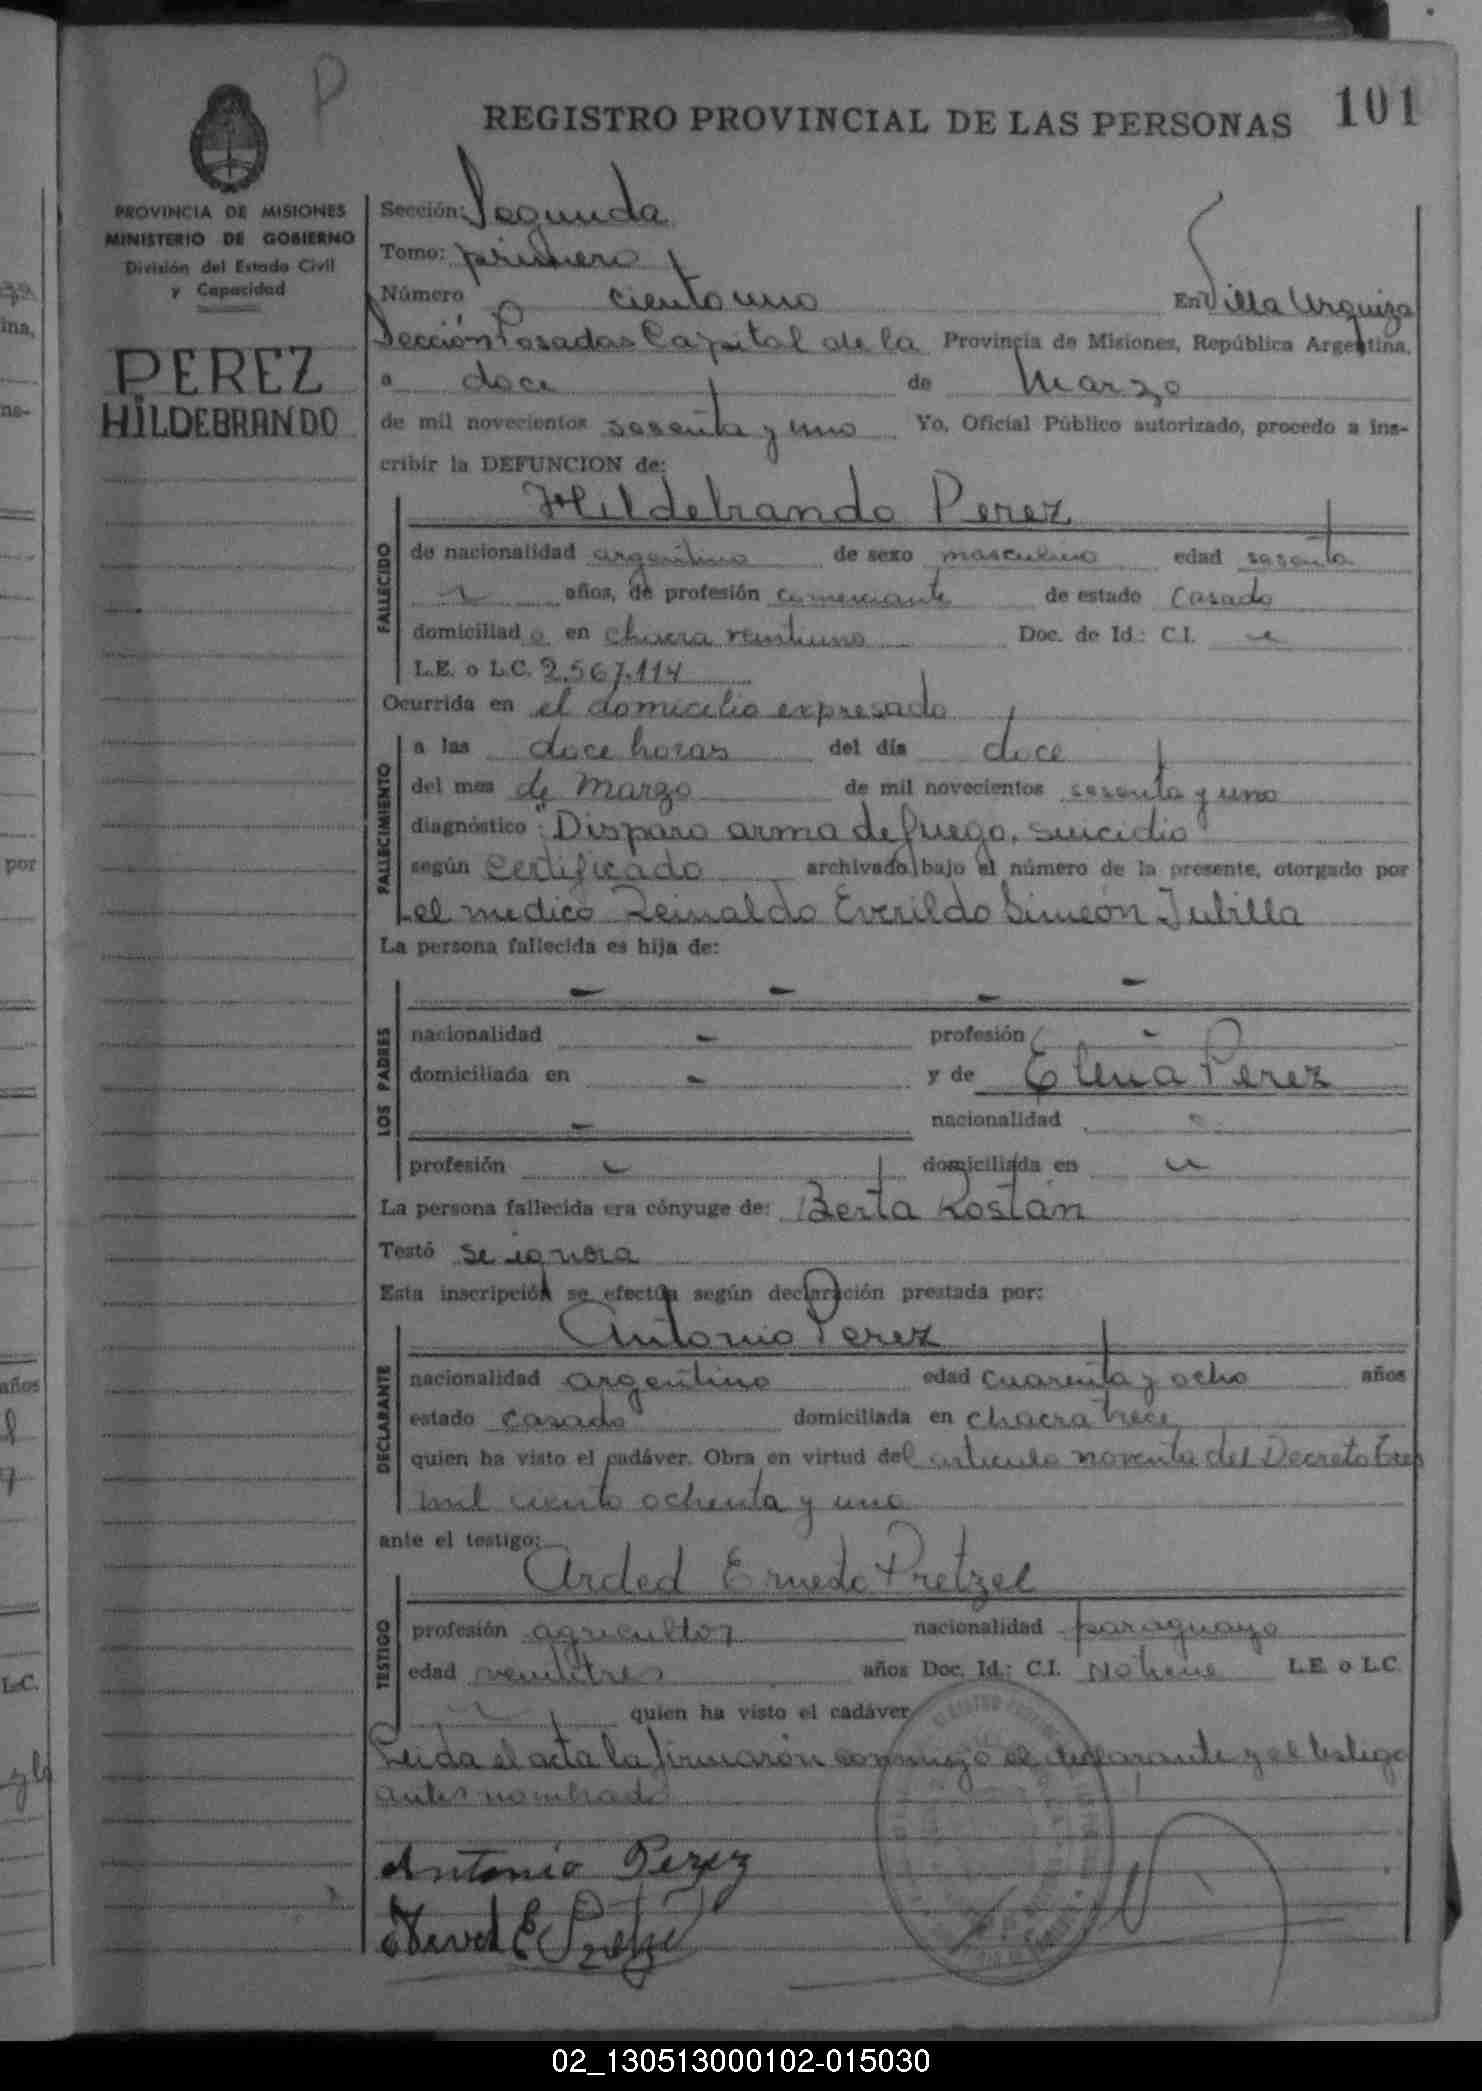 P
REGISTRO PROVINCIAL DE LAS PERSONAS 101
PROVINCIA DE MISIONES
MINISTERIO DE GOBIERNO
División del Estado Civil
y Capacidad
PEREZ
HILDEBRANDO
Sección: Segunda
Tomo: primero
Número ciento uno En Villa Urquiza
Sección Posadas Capital de la Provincia de Misiones, República Argentina,
a doce de Marzo
de mil novecientos sesenta y uno Yo, Oficial Público autorizado, procedo a ins-
cribir la DEFUNCION de:
Hildebrando Perez
FALLECIDO
de nacionalidad argentino de sexo masculino edad sesenta
años, de profesión comerciante de estado casado
domiciliado en chacra veintiuno Doc. de Id.: C.I.
L.E. o L.C. 2.567.114
Ocurrida en el domicilio expresado
FALLECIMIENTO
a las doce horas del día doce
del mes de Marzo de mil novecientos sesenta y uno
diagnóstico: "Disparo arma de fuego. suicidio
según certificado archivado bajo el número de la presente, otorgado por
el medico Reinaldo Everildo Simeón Jubilla
La persona fallecida es hija de:
LOS PADRES
- - - -
nacionalidad - profesión -
domiciliada en - y de Elena Perez
- nacionalidad
profesión domiciliada en
La persona fallecida era cónyuge de: Berta Rostán
Testó se ignora
Esta inscripción se efectúa según declaración prestada por:
Antonio Perez
DECLARANTE
nacionalidad argentino edad cuarenta y ocho años
estado casado domiciliada en chacra trece
quien ha visto el cadáver. Obra en virtud del articulo noventa del Decreto tres
mil ciento ochenta y uno
ante el testigo:
Arded Ernesto Pretzel
TESTIGO
profesión agricultor nacionalidad paraguayo
edad veintitres años Doc. Id.: C.I. No tiene L.E. o L.C.
quien ha visto el cadáver
Leida el acta la firmarón conmigo el declarante y el testigo
antes nombrado
Antonio Perez
E Pretzel
02_130513000102-015030